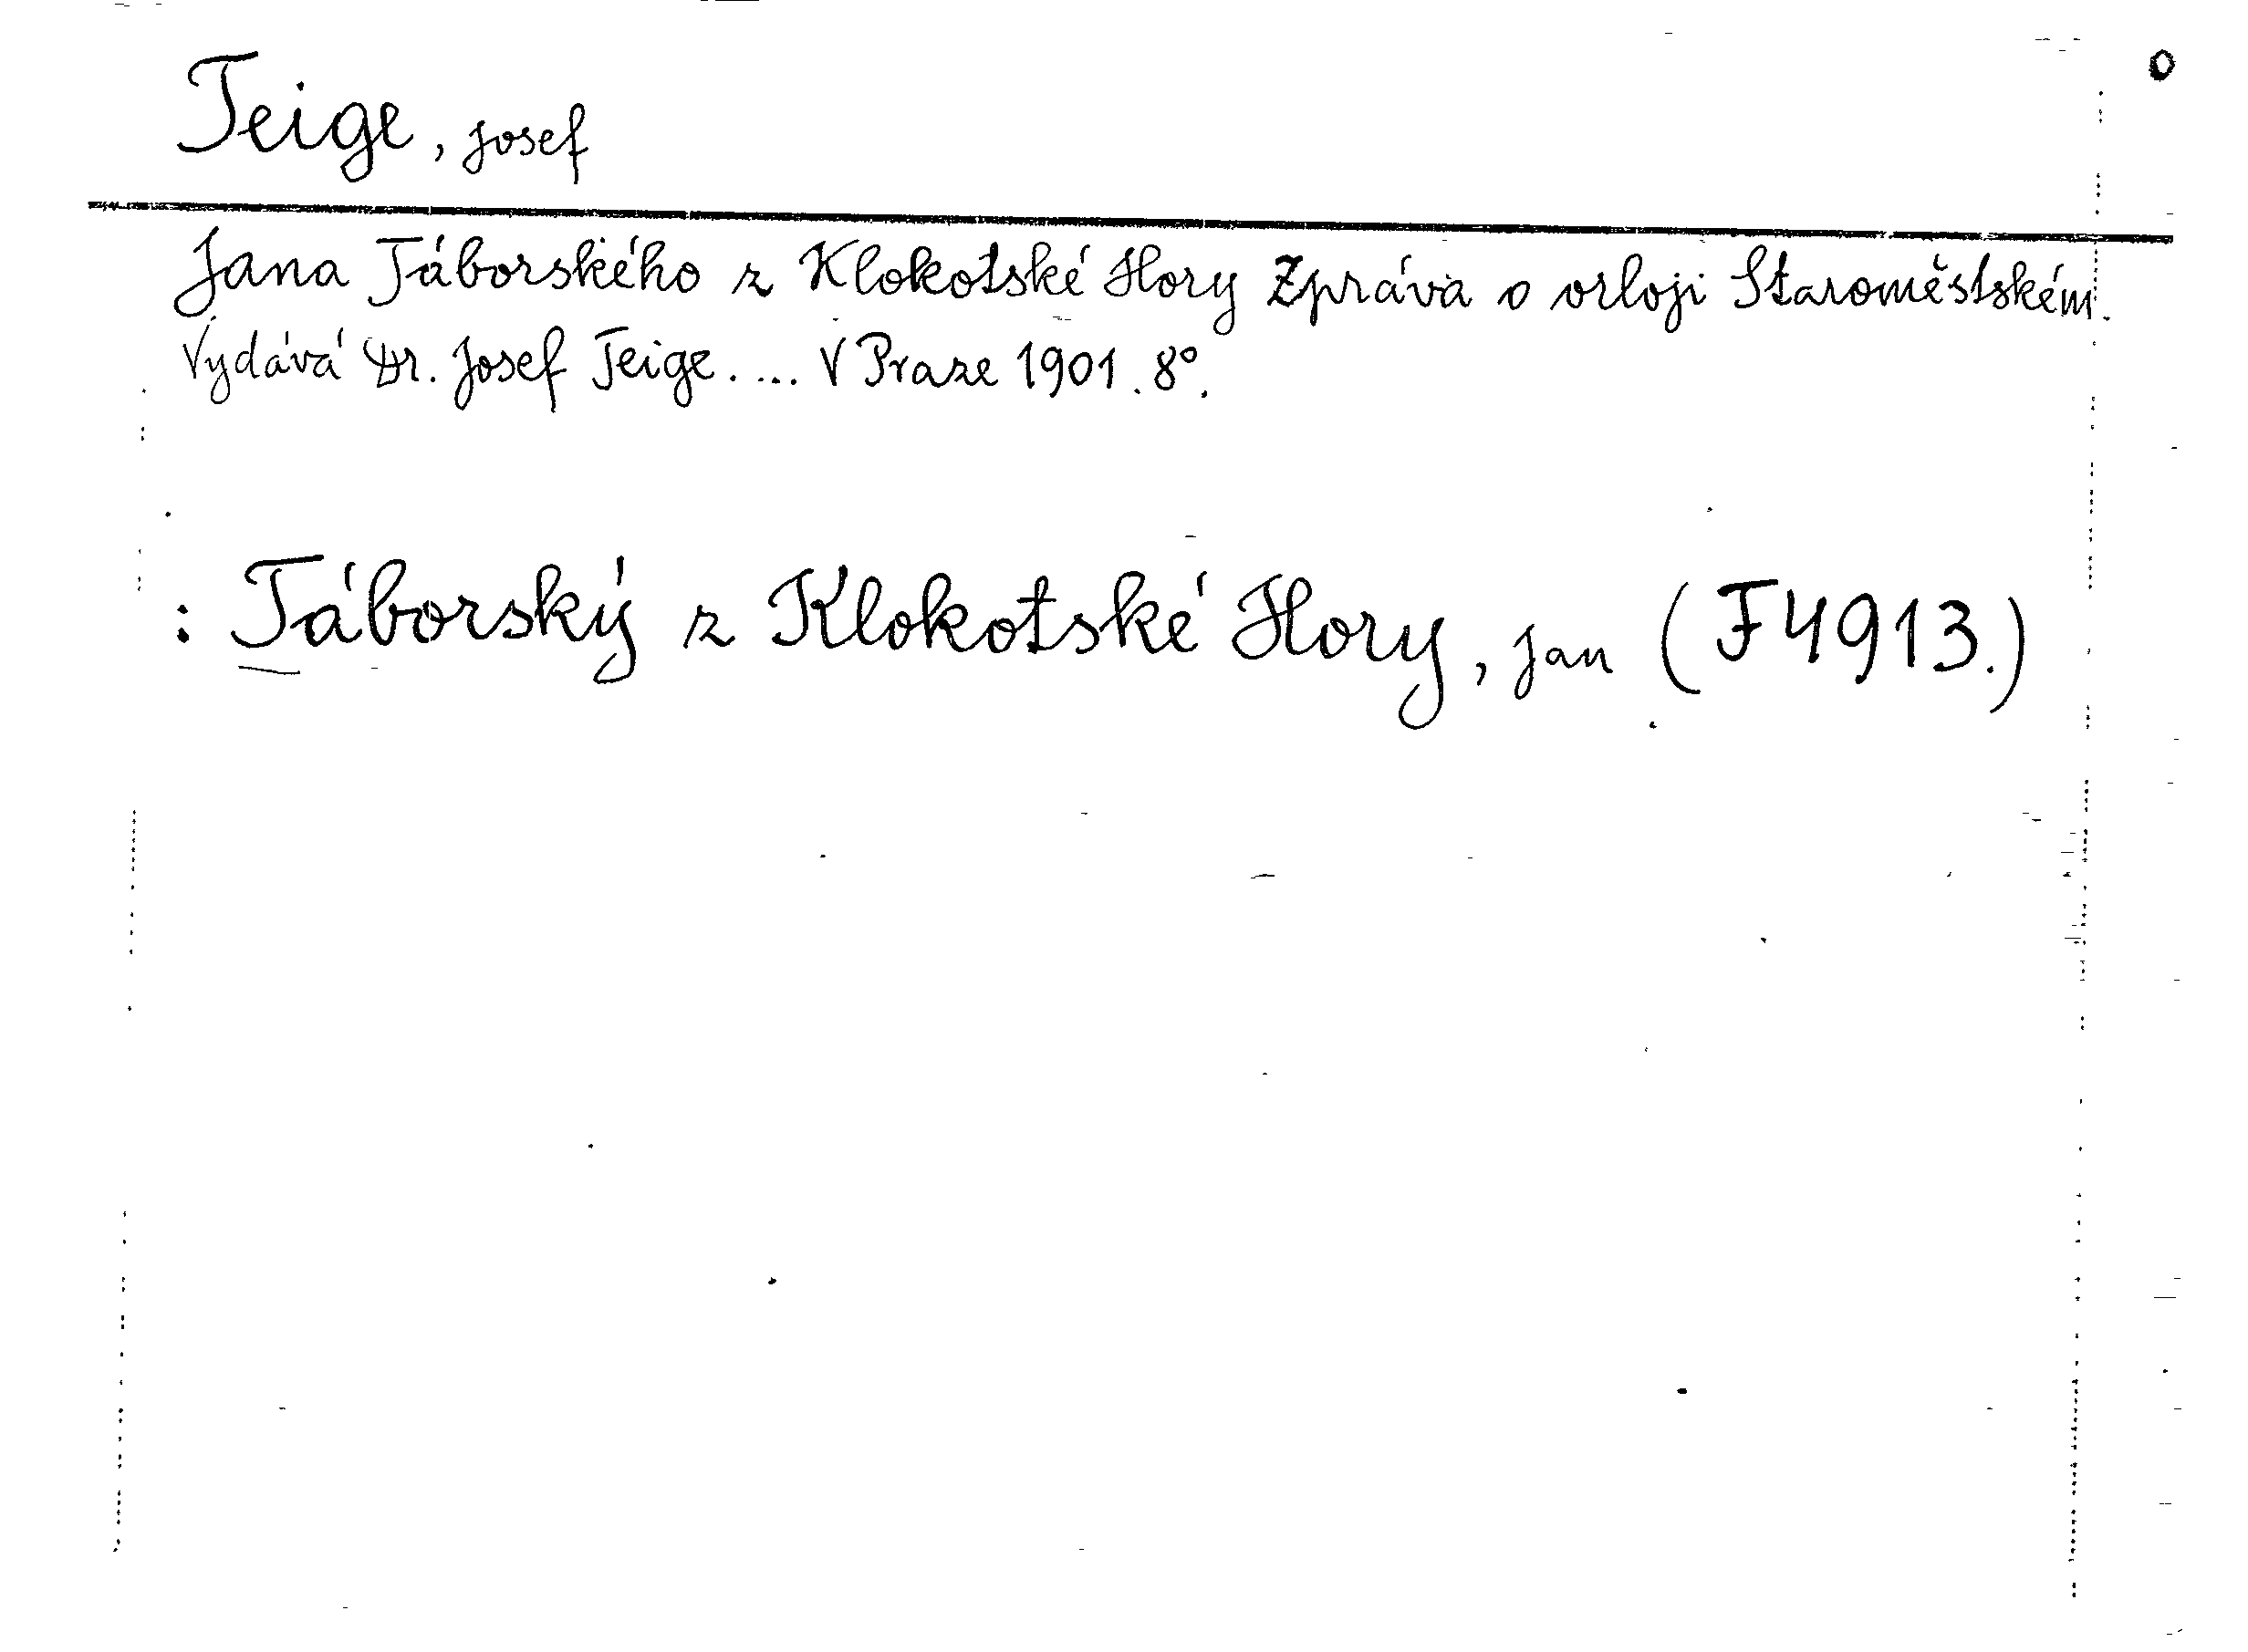 Teige, Josef
Jana Táborského z Klokotské Hory Zpráva o orloji Staroměstském.
Vydává Dr. Josef Teige.... V Praze 1901. 8°.
: Táborský z Klokotské Hory, Jan (F4913.)